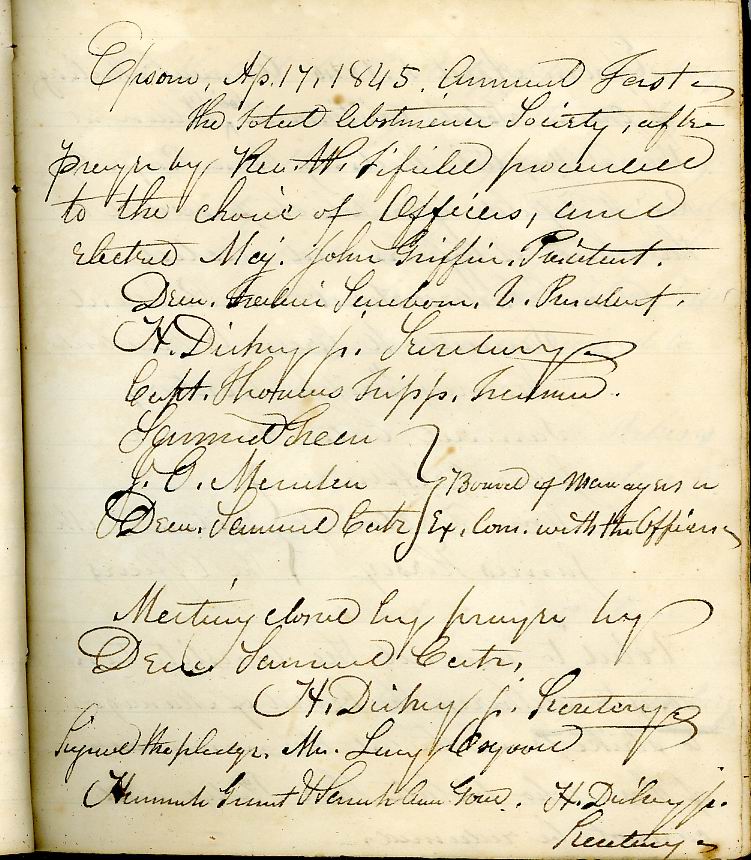 Epsom, Ap. 17, 1845. Annual Fast
the total Abstinence Society, after
prayer by Rev. W. Fifield proceeded
to the choice of Officers, and
elected Maj. John Griffin. President.
Deac. Sanborn. V. President.
H. Dickey jr. Secretary
Capt. Thomas Tripp. Treasurer.
Samuel Green
J. C. Merden
Deac. Samuel Cate } Board of Managers or
Ex. Com. with the Officers
Meeting closed by prayer by
Deac Samuel Cate,
H. Dickey jr. Secretary
Signed the pledge. Mrs. Lucy Osgood
Hannah Grant & Sarah Ann Goss. H. Dickey jr.
Secretary